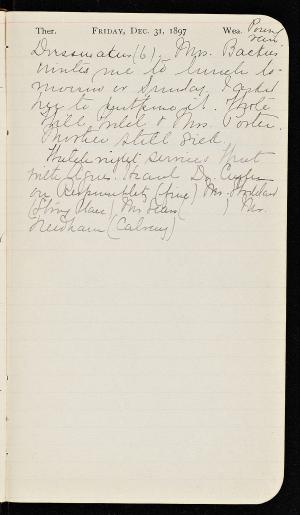 Ther. FRIDAY, DEC. 31, 1897 Wea. Pouring rain
Dressmaker (6). Mrs. Backus
invites me to lunch to-
morrow or Sunday. I asked
her to postpone it. Wrote
Will, Mabel & Mrs. Porter.
Mother still sick.
Watch night services
with Agnes. Heard Dr. Cuyler
on Responsibility (fine) Mr. Stoddard
(Strong Place) Mr. Dean ( ) Mr.
Needham (Calvary)